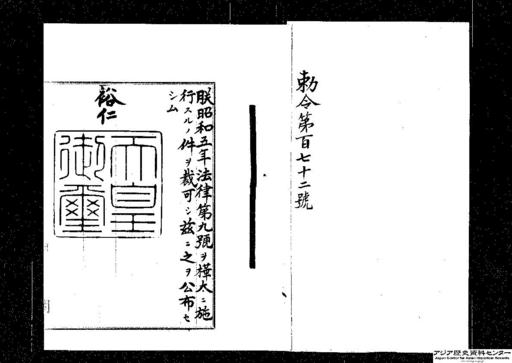 勅令第百七十二號
朕昭和五年法律第九號ヲ樺太ニ施
行スルノ件ヲ裁可シ茲ニ之ヲ公布セ
シム
裕仁
天皇
御璽
アジア歴史資料センター
Japan Center for Asian Historical Records